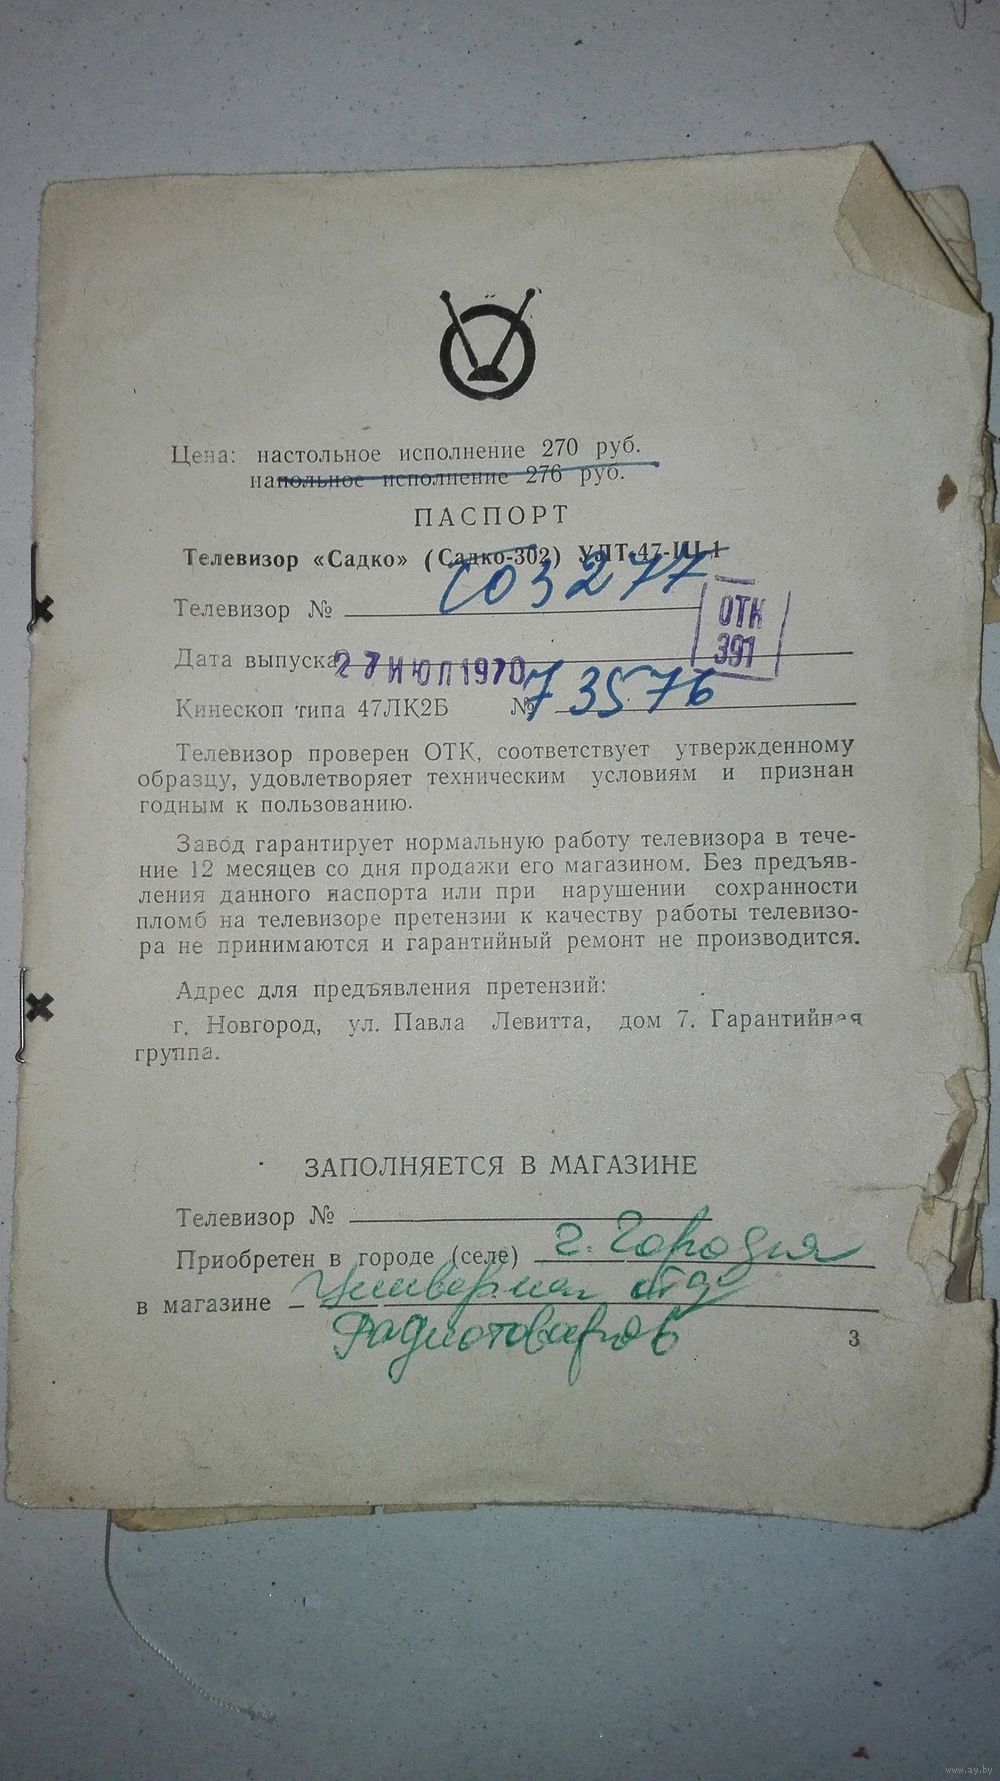 Цена: настольное исполнение 270 руб.
напольное исполнение 276 руб.
ПАСПОРТ
Телевизор «Садко» (Садко-302) УЛТ-47-III-1
Телевизор № С03277
ОТК
391
Дата выпуска 27 ИЮЛ 1970
Кинескоп типа 47ЛК2Б № 73576
Телевизор проверен ОТК, соответствует утвержденному
образцу, удовлетворяет техническим условиям и признан
годным к пользованию.
Завод гарантирует нормальную работу телевизора в тече-
ние 12 месяцев со дня продажи его магазином. Без предъяв-
ления данного паспорта или при нарушении сохранности
пломб на телевизоре претензии к качеству работы телевизо-
ра не принимаются и гарантийный ремонт не производится.
Адрес для предъявления претензий:
г. Новгород, ул. Павла Левитта, дом 7. Гарантийная
группа.
ЗАПОЛНЯЕТСЯ В МАГАЗИНЕ
Телевизор №
Приобретен в городе (селе) г. Городея
в магазине Универмаг отд
Радиотоваров
3
www.ay.by